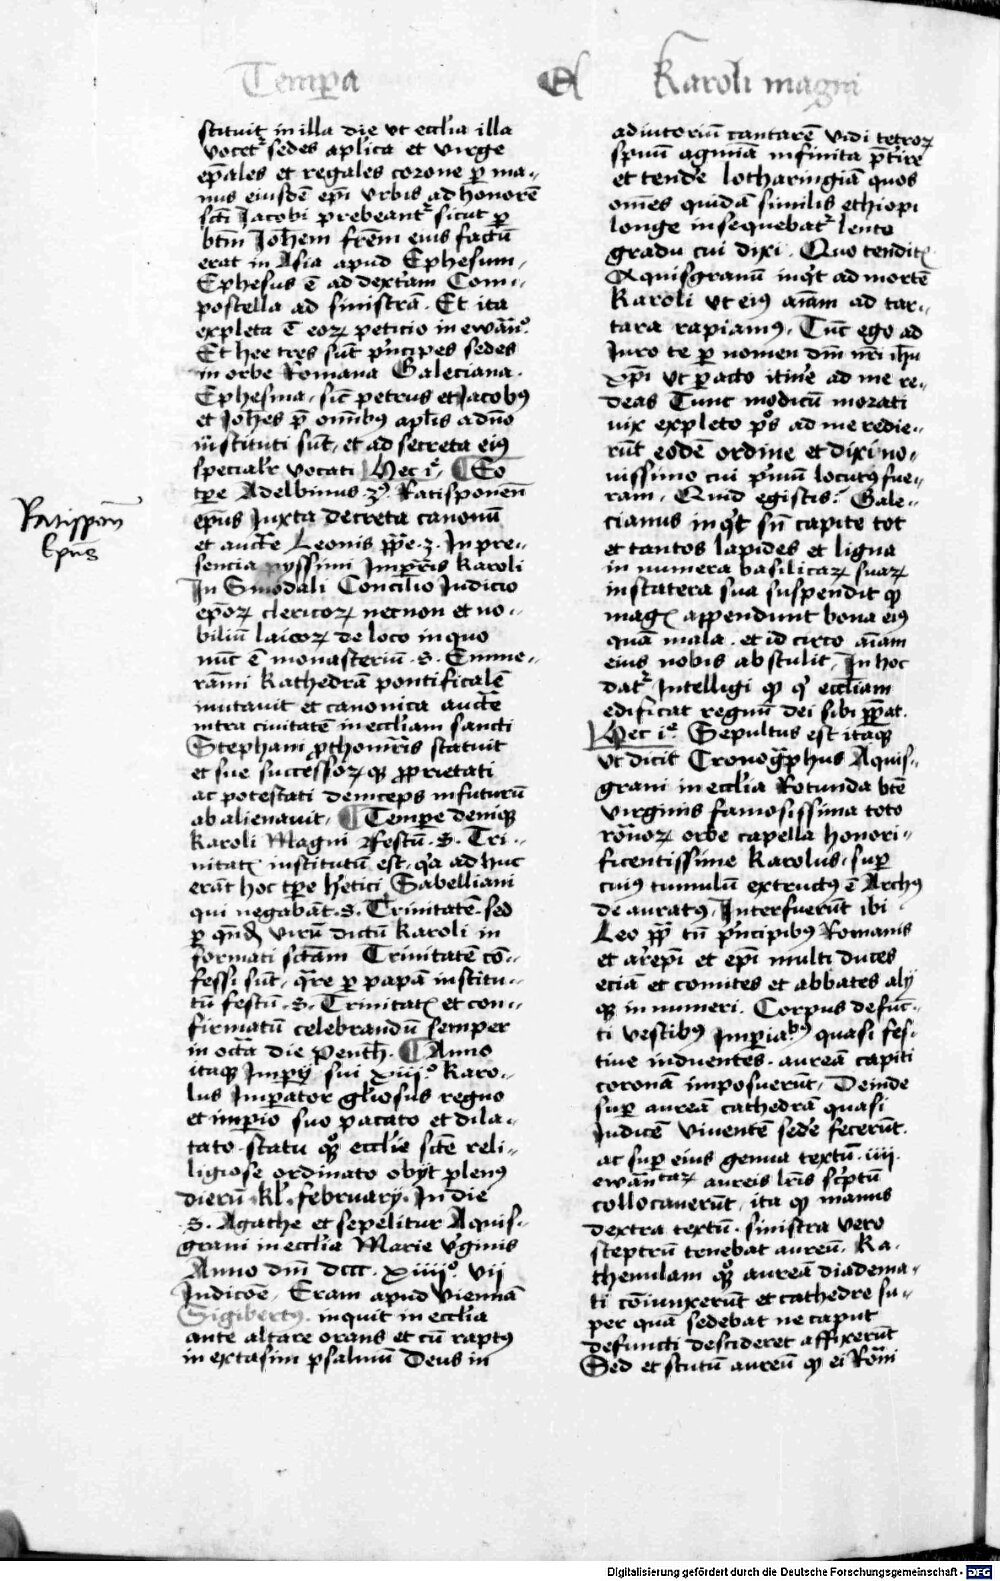 Tempa Et Karoli magni
stituit in illa die vt ecclia illa
vocet sedes aplica et virge
epales et regales corone p ma-
nus eiusdē epi vrbis ad honorē
scti Jacobi prebeant sicut p
btm Joh̄em frēm eius factū
erat in Asia apud Ephesum,
Ephesus ē ad dextram Com-
postella ad sinistrā. Et ita
expleta ē eoꝝ peticio in ewāno.
Et hee tres sūt pncipes sedes
in orbe Romana Galeciana.
Ephesina, sic petrus et Jacobꝰ
et Joh̄es p̄ omībꝰ apl̄is a dn̄o
instituti sūt, et ad secreta eiꝰ
specialr vocati Hec i. Eo
tpe Adelbinus.3ꝰ. Ratisponen̄
epūs Juxta decreta canonū
et aucte Leonis ppe.3. In pre-
sencia pyssimi Impr̄is Karoli
In Sinodali Concilio Judicio
epoꝝ clericoꝝ necnon et no-
biliū laicoꝝ de loco in quo
nūc ē monasteriū.S. Emme-
rāmi Kathedrā pontificalē
mutauit et canonica aucte
intra ciuitatē in eccliam sancti
Stephani pthomr̄is statuit
et sue successoꝝ qꝫ pprietati
ac potestati deinceps in futurū
ab alienauit, Tempe deniqꝫ
Karoli Magni festū.S.Tri-
nitatꝭ institutū est, qa ad huc
erāt hoc tpe h̄etici Sabelliani
qui negabāt.S.Trinitatē. sed
p qndā virū dictū Karoli in
formati sctām Trinitatē cō-
fessi sūt, qre p papā institu-
tū festū.S.Trinitatꝭ et con-
firmatū celebrandū semper
in octā die Penth. Anno
itaqꝫ Impij sui xiiiꝰ. Karo-
lus Impator gl̄iosus regno
et imperio suo pacato et dila-
tato. statu qꝫ ecclie scte reli-
ligiose ordinato obyt plenꝰ
dierū. kl. february. In die
S. Agathe et sepelitur Aquis-
grani in ecclia Marie vginis
Anno dm̄ dccc. xiiiiꝰ. vii
Indicōe, Eram apud viennā
Sigibertꝰ. inquit in ecclia
ante altare orans et cū raptꝰ
in extasim psalmū Deus in
Ratispon̄
Epūs
adiutoriū cantarē vidi tetroꝝ
spūū agmīa infinita ptire
et tende lotharingiā quos
om̄es quidā similis ethiopi
longe insequebat lento
gradu cui dixi. Quo tenditꝭ
Aquisgranū inqt ad mortē
Karoli vt eiꝰ aīam ad tar-
tara rapiamꝰ, Tūc ego ad
Juro te p nomen dm̄ nr̄i ihu
xpi vt pacto itine ad me re-
deas Tunc modicū morati
vix expleto ps ad me redie-
rūt eodē ordine et dixi no-
uissimo cui pmū locutꝰ fue-
ram, Quid egistis? Gale-
cianus inqt sn̄ capite tot
et tantos lapides et ligna
in numera basilicaꝝ suaꝝ
in statera sua suspendit qꝫ
magꝭ appendunt bona eiꝰ
quā mala. et id circo aīam
eius nobis abstulit, In hoc
dat Intelligi qꝫ q eccliam
edificat regnū dei sibi ppat.
Hec i. Sepultus est itaqꝫ
vt dicit Cronogphus Aquis-
grani in ecclia Rotunda bte
virginis famosissima toto
rōnoꝝ orbe capella honori-
ficentissime Karolus, sup
cuiꝰ tumulū extructꝰ ē Archꝰ
de auratꝰ, Interfuerūt ibi
Leo pp̄ cū pncipibꝰ Romanis
et arepi et epi multi duces
eciā et comites et abbates alij
qꝫ in numeri. Corpus defūc-
ti vestibꝰ Imperiabꝰ quasi fes-
tiue induentes. aureā capiti
coronā imposuerūt, Deinde
sup aureā cathedrā quasi
Judicē viventē sede fecerūt.
ac sup eius genua textū. iiii.
ewāntaꝝ aureis lr̄is scptū
collocauerūt, ita qꝫ manus
dextra textū. sinistra vero
sceptrū tenebat aureū. Ka-
thenulam qꝫ aureā diadema-
ti cōiunxerūt et cathedre su-
per quā sedebat ne caput
defuncti descideret affixerūt
Sed et scutū aureū qꝫ ei Rōni
Digitalisierung gefördert durch die Deutsche Forschungsgemeinschaft - DFG